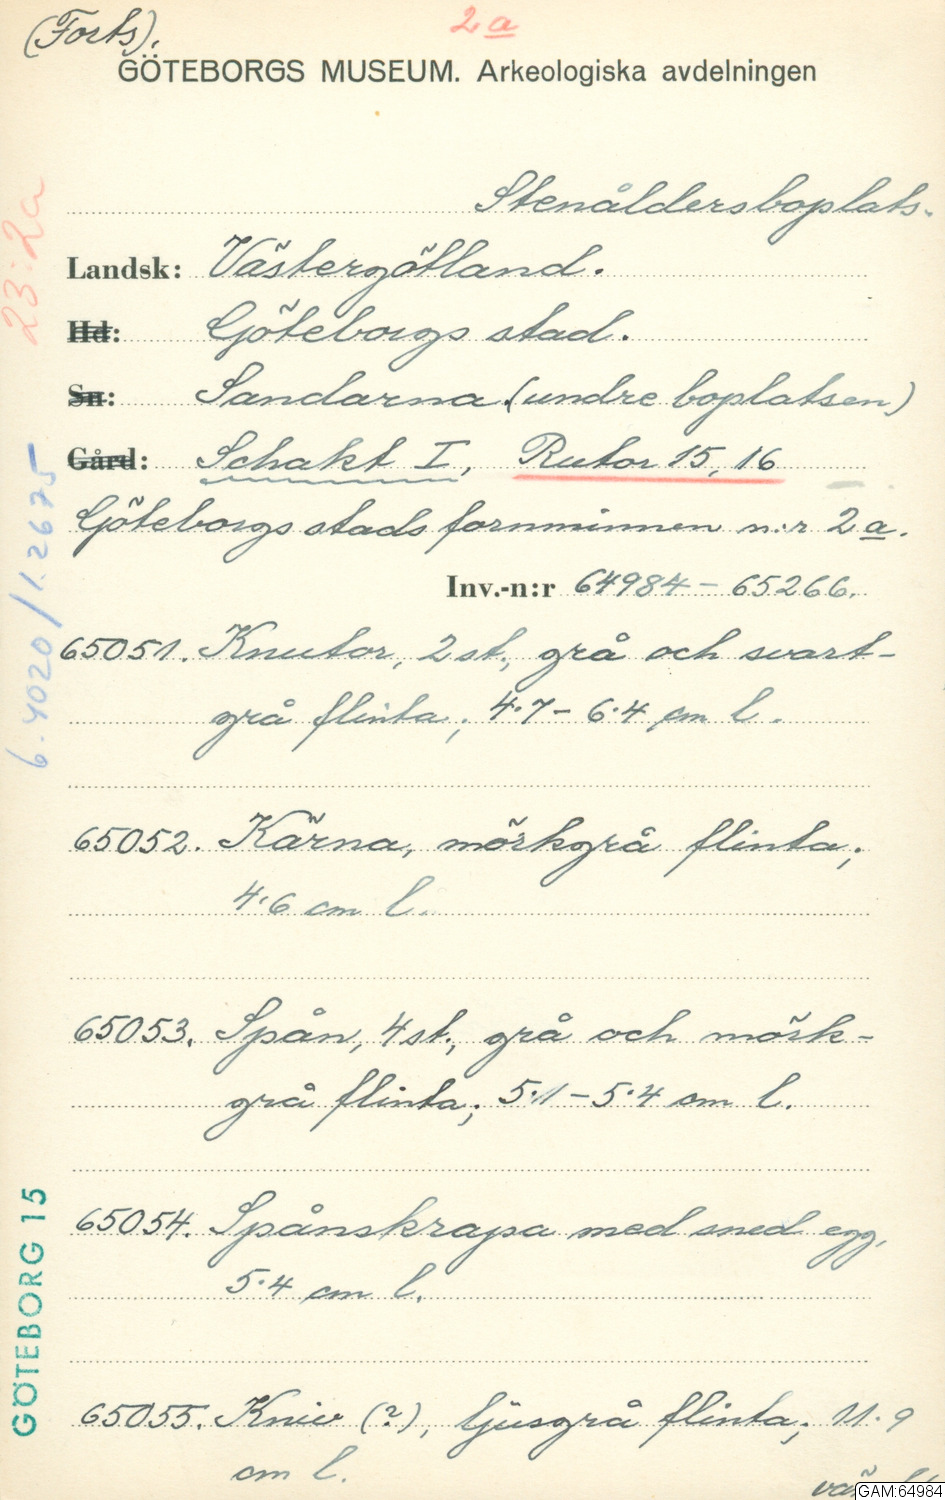 (Forts).
2 a
GÖTEBORGS MUSEUM. Arkeologiska avdelningen
Stenåldersboplats.
Landsk: Västergötland.
Hd: Göteborgs stad.
Sn: Sandarna (undre boplatsen)
Gård: Schakt I, Rutor 15, 16
Göteborgs stads fornminnen n:r 2 a.
Inv.-n:r 64984 – 65266.
65051. Knutor, 2 st., grå och svart-
grå flinta, 4.7 – 6.4 cm l.
65052. Kärna, mörkgrå flinta,
4.6 cm l.
65053. Spån, 4 st., grå och mörk-
grå flinta; 5.1 – 5.4 cm l.
65054. Spånskrapa med sned egg,
5.4 cm l.
65055. Kniv (?), ljusgrå flinta, 11.9
cm l.
23:2a
6.4020/1.2675
GÖTEBORG 15
GAM:64984